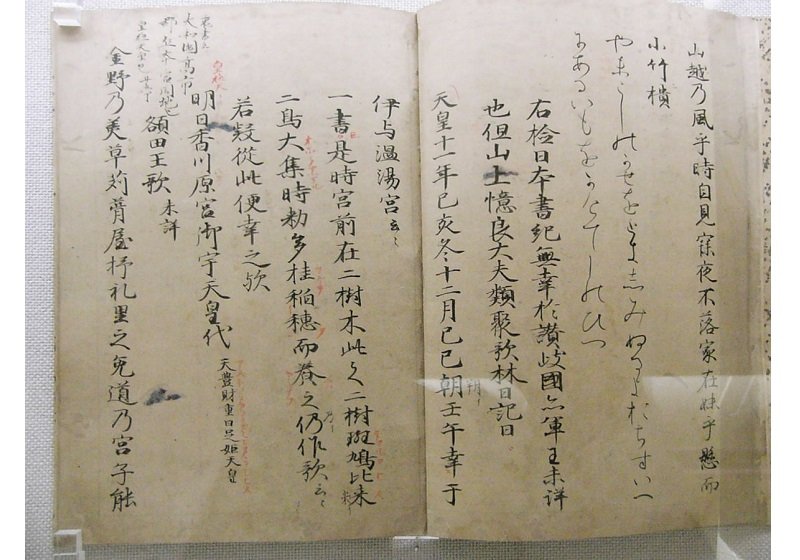 山越乃風乎時自見寐夜不落家在妹乎懸而
小竹樻
やまこしのかせをときしみぬるよおちすいへ
にあるいもをかけてしのひつ
右檢日本書紀無幸於讃岐國亦軍王未詳
也但山上憶良大夫類聚歌林曰記曰
天皇十一年己亥冬十二月己巳朝壬午幸于
伊与温湯宮云〻
一書是時宮前在二樹木此之二樹斑鳩比米
二鳥大集時勅多桂稲穂而養之仍作歌云〻
若疑從此便幸之歟
明日香川原宮御宇天皇代 天豊財重日足姫天皇
額田王歌 未詳
大和國高市
金野乃美草苅葺屋杼礼里之兔道乃宮子能